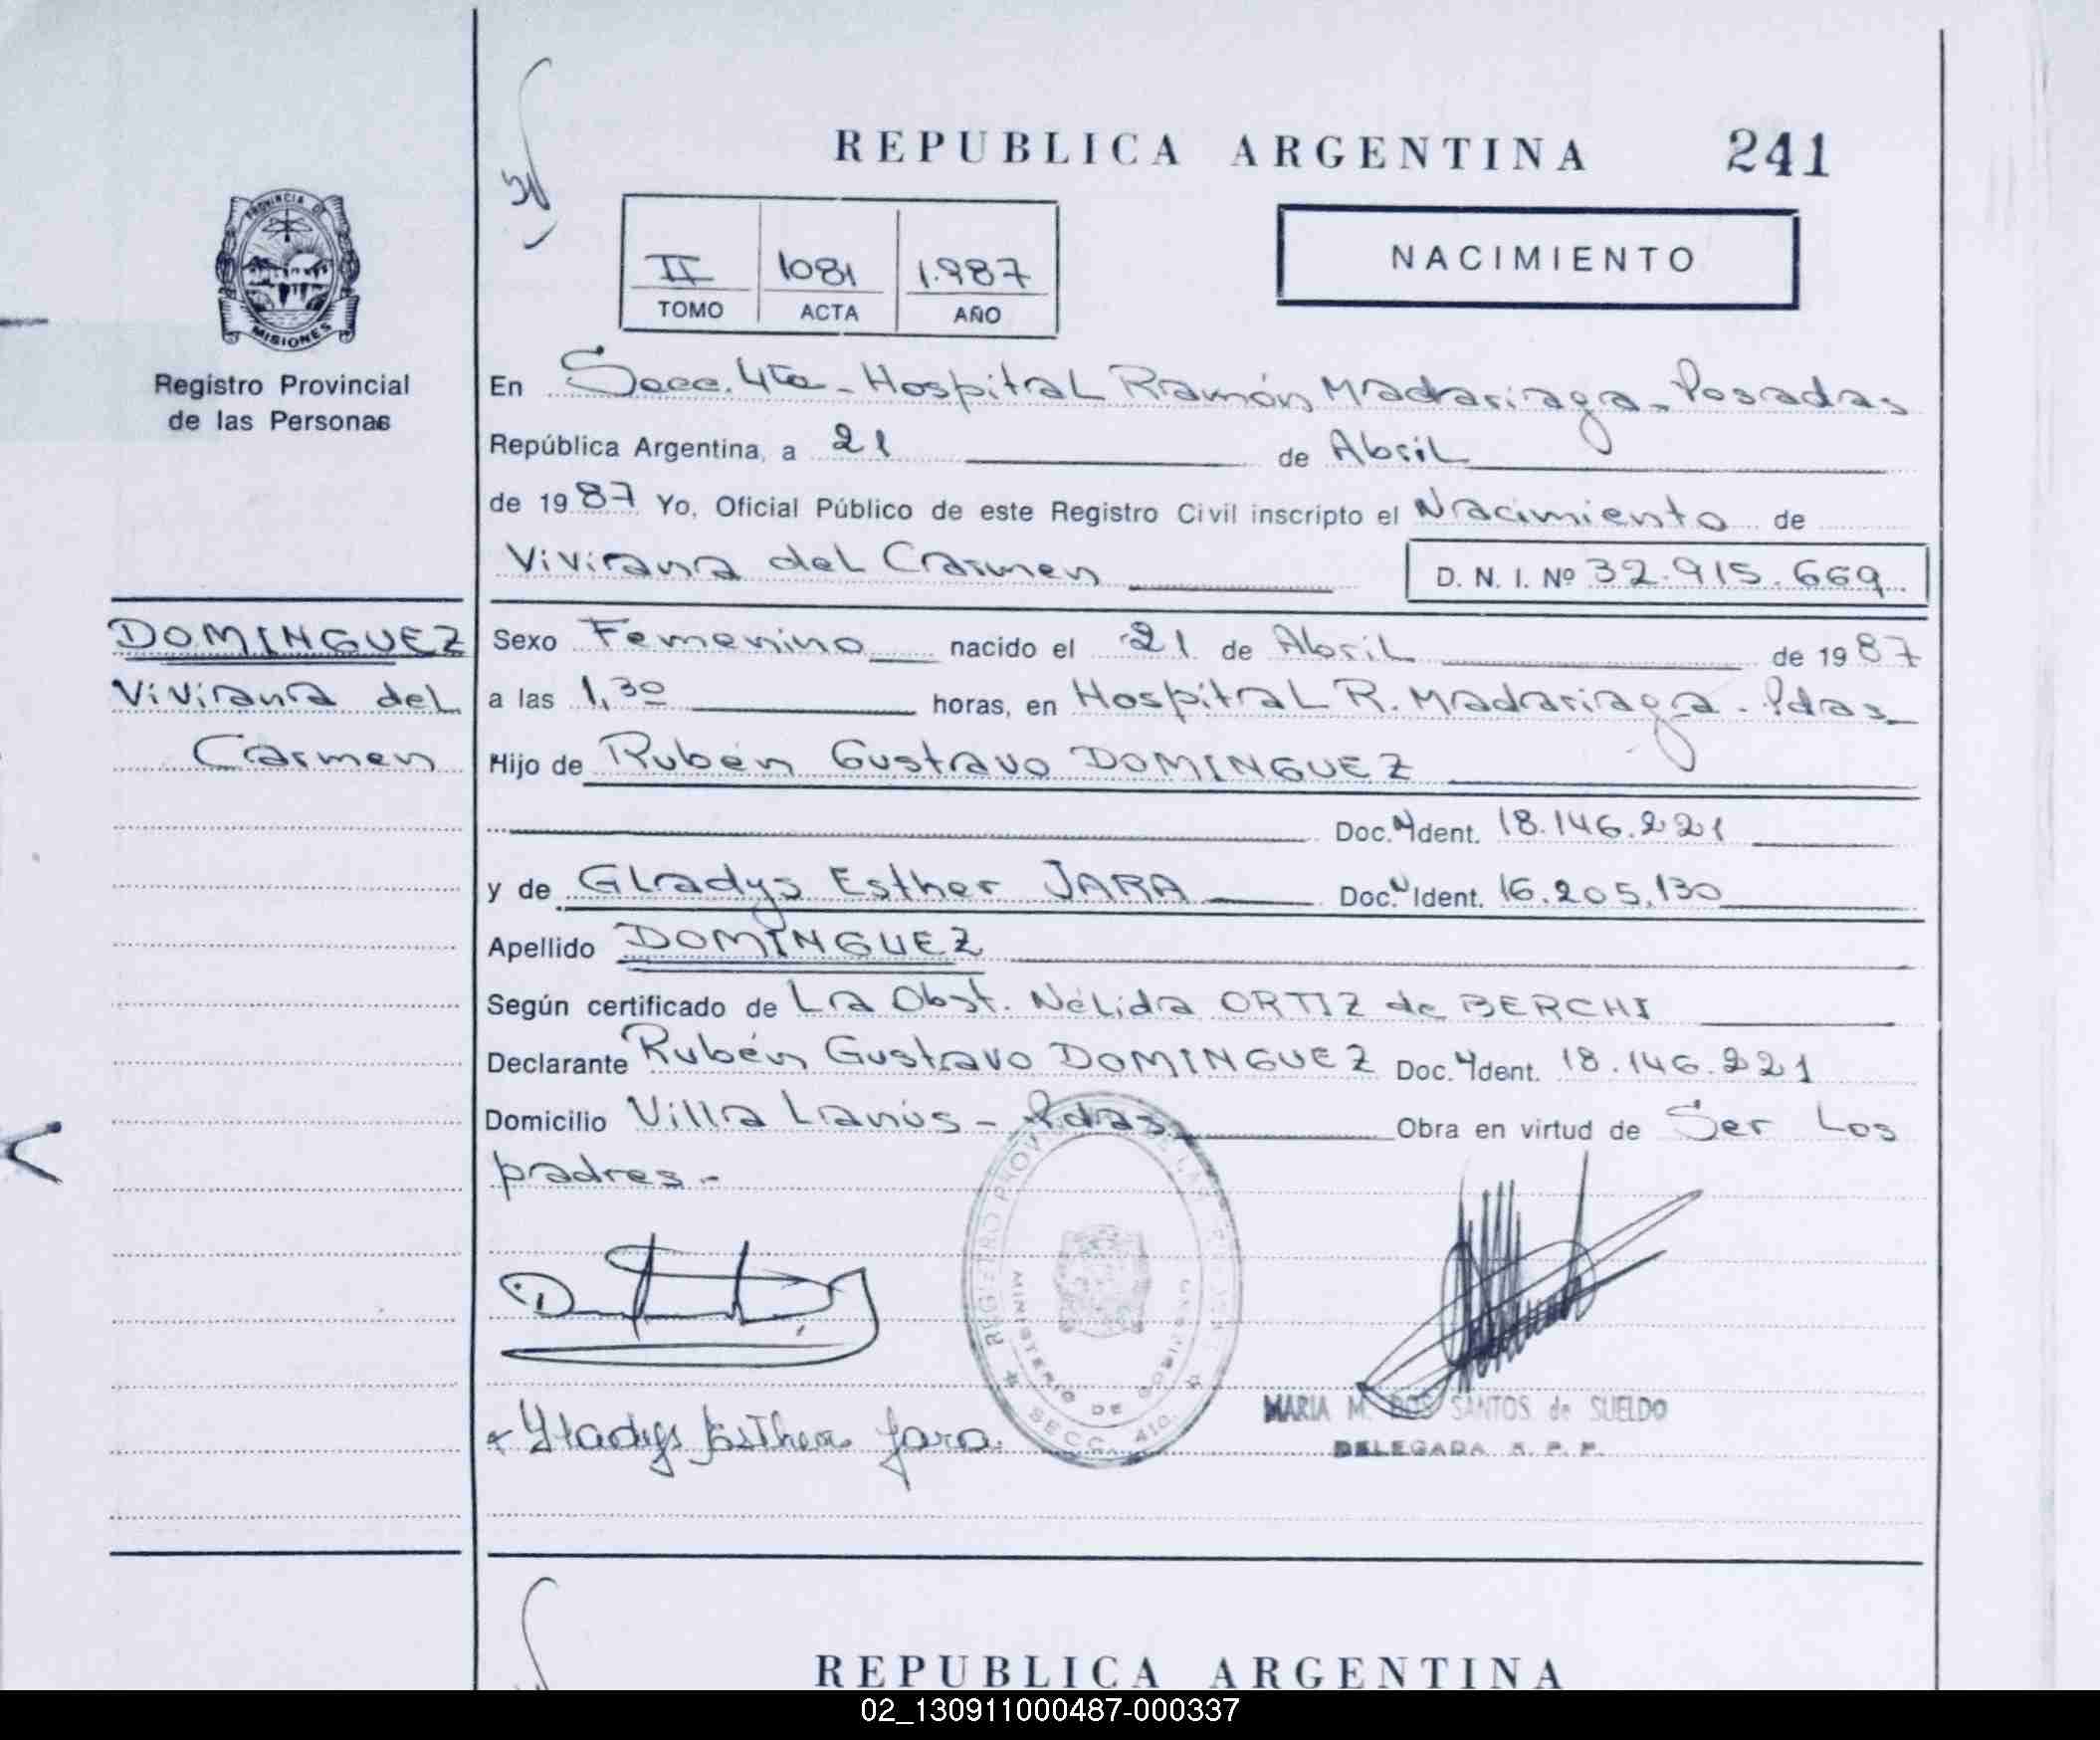 REPUBLICA ARGENTINA 241
PROVINCIA DE
MISIONES
Registro Provincial
de las Personas
II 1081 1.987
TOMO ACTA AÑO
NACIMIENTO
En Secc. 4ta - Hospital Ramón Madariaga - Posadas
República Argentina, a 21 de Abril
de 1987 Yo, Oficial Público de este Registro Civil inscripto el Nacimiento de
Viviana del Carmen D. N. I. Nº 32.915.669
DOMINGUEZ
Viviana del
Carmen
Sexo Femenino nacido el 21 de Abril de 1987
a las 1,30 horas, en Hospital R. Madariaga - Pdas
Hijo de Rubén Gustavo DOMINGUEZ
Doc. Ident. 18.146.221
y de Gladys Esther JARA Doc. Ident. 16.205.130
Apellido DOMINGUEZ
Según certificado de La Obst. Nélida ORTIZ de BERCHI
Declarante Rubén Gustavo DOMINGUEZ Doc. Ident. 18.146.221
Domicilio Villa Lanús - Pdas Obra en virtud de Ser Los
padres.-
REGISTRO
MINISTERIO DE GOBIERNO
SECC. 4ta.
Gladys Esther Jara.
MARIA M. DOS SANTOS de SUELDO
DELEGADA R. P. P.
REPUBLICA ARGENTINA
02_130911000487-000337